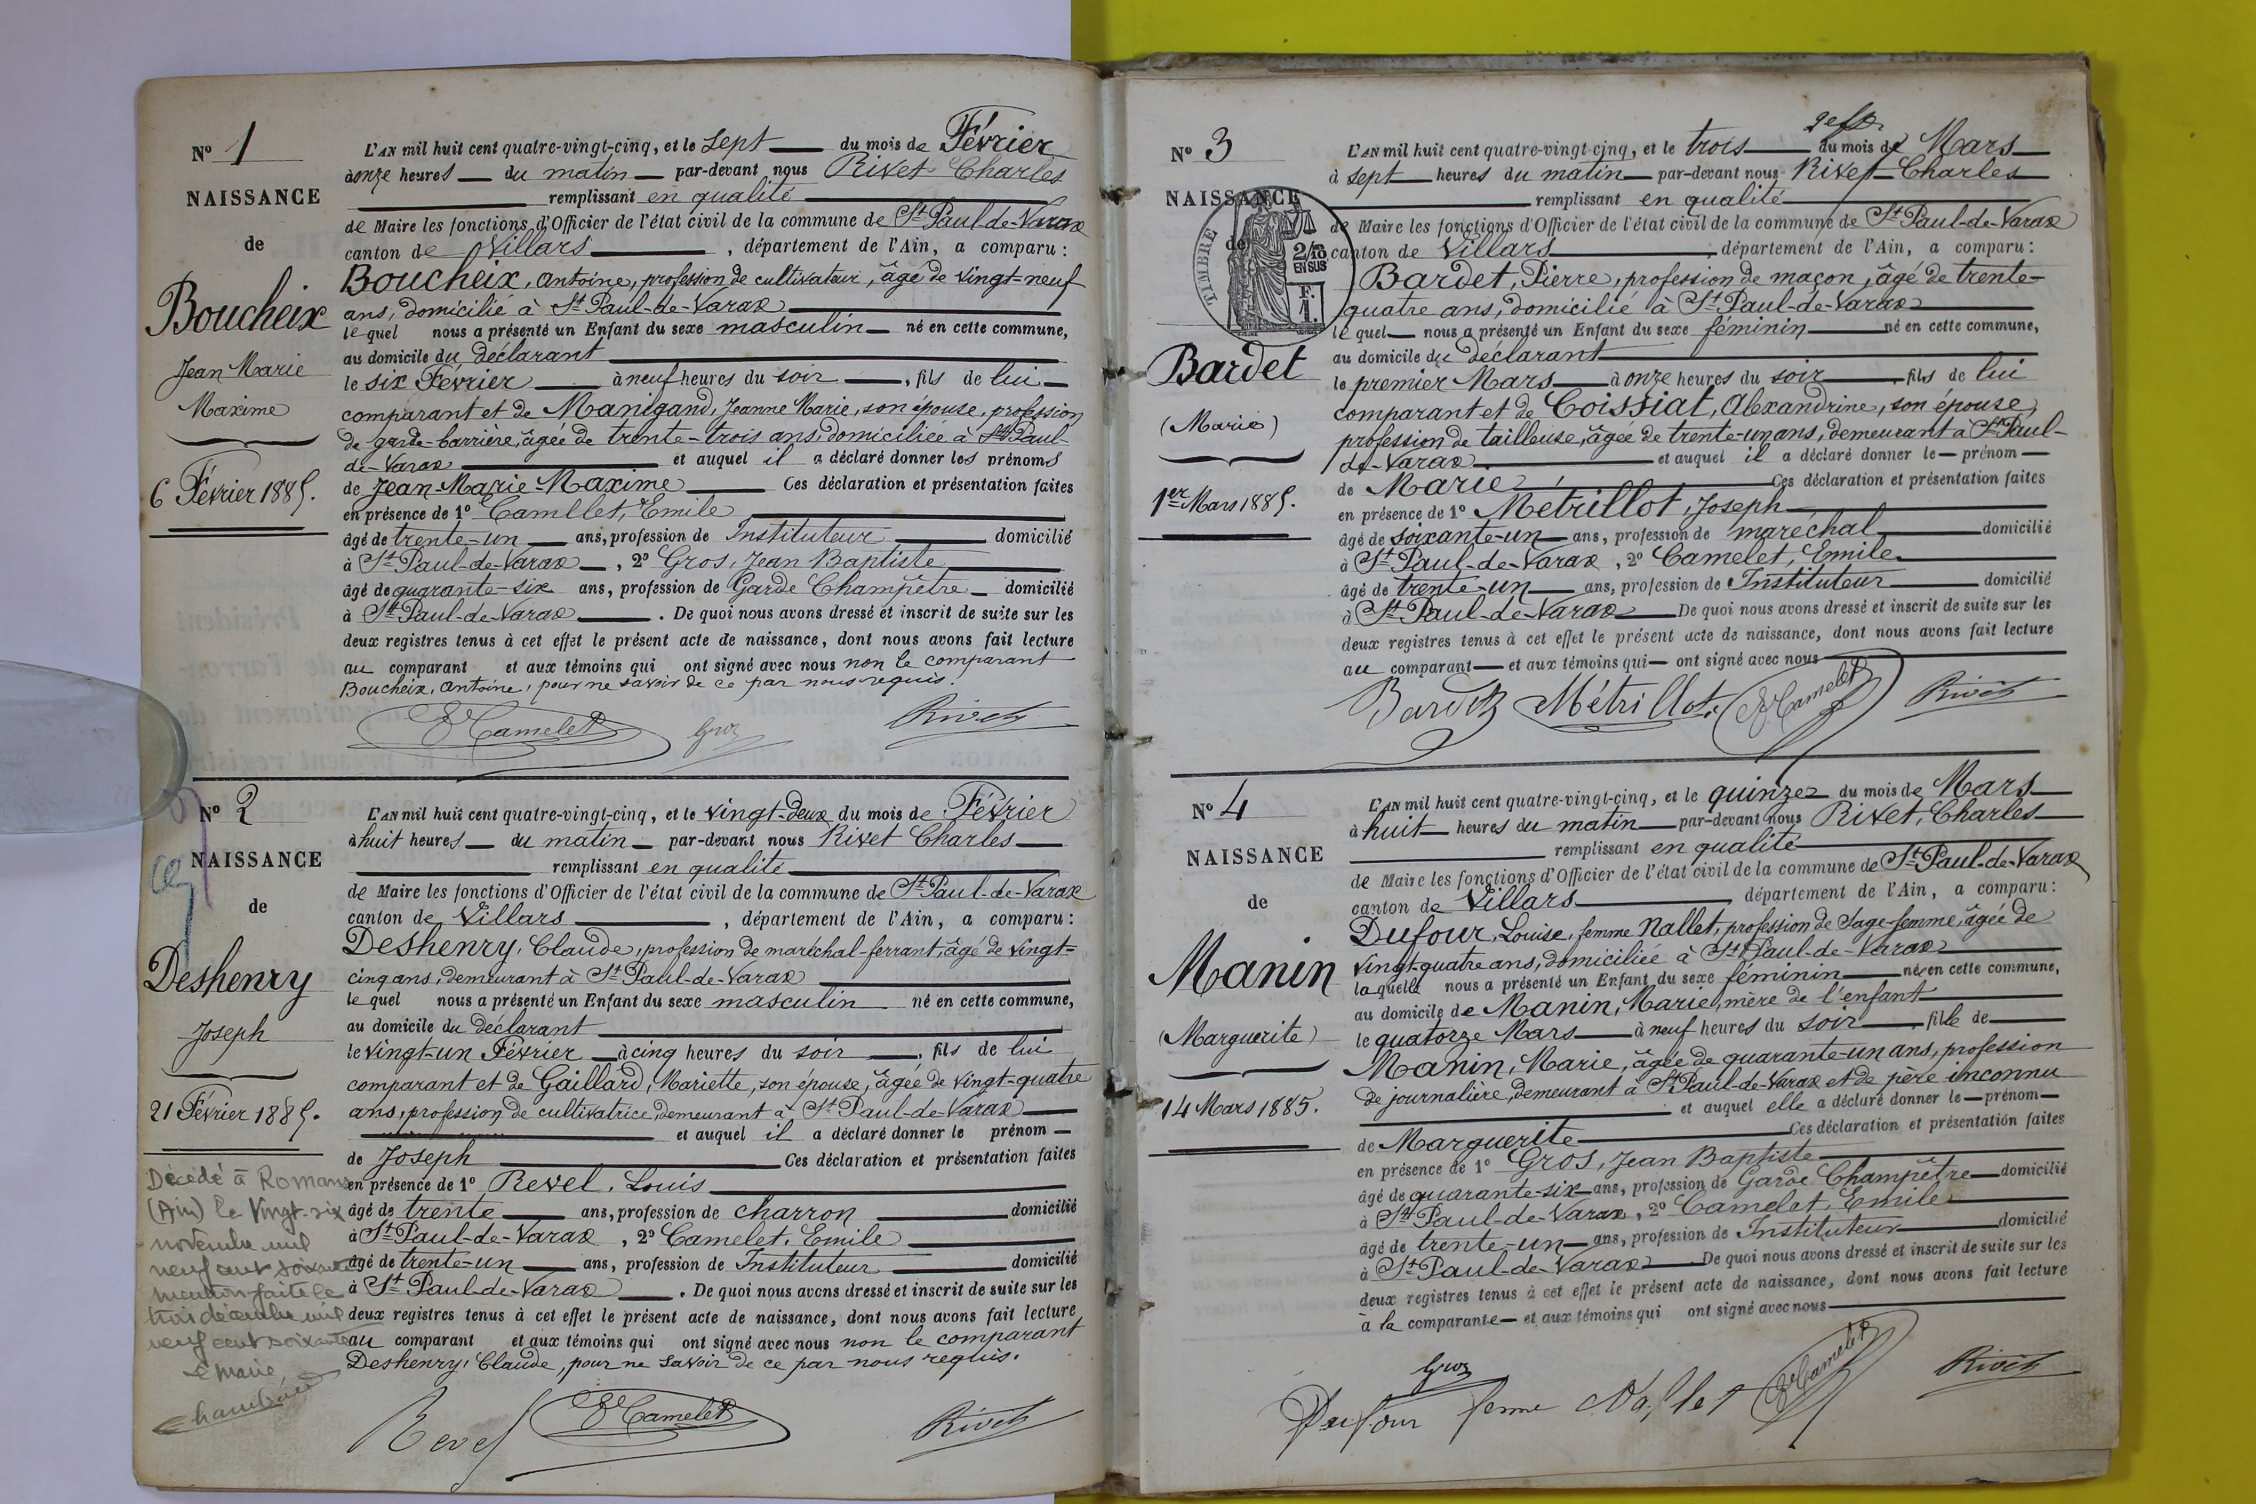 N° 1
NAISSANCE
de
Boucheix
Jean Marie
Maxime
6 Février 1885.
L'AN mil huit cent quatre-vingt-cinq, et le sept du mois de Février
à onze heures du matin par-devant nous Rivet Charles
remplissant en qualité
de Maire les fonctions d'Officier de l'état civil de la commune de St Paul-de-Varax
canton de Villars, département de l'Ain, a comparu :
Boucheix, Antoine, profession de cultivateur, âgé de vingt-neuf
ans, domicilié à St Paul-de-Varax
le quel nous a présenté un Enfant du sexe masculin né en cette commune,
au domicile du déclarant
le six Février à neuf heures du soir, fils de lui
comparant et de Manigand, Jeanne Marie, son épouse, profession
de garde-barrière, âgée de trente-trois ans, domiciliée à St Paul-
de-Varax et auquel il a déclaré donner les prénoms
de Jean-Marie-Maxime Ces déclaration et présentation faites
en présence de 1° Camllet, Emile
âgé de trente-un ans, profession de Instituteur domicilié
à St Paul-de-Varax, 2° Gros, Jean Baptiste
âgé de quarante-six ans, profession de Garde Champêtre domicilié
à St Paul-de-Varax. De quoi nous avons dressé et inscrit de suite sur les
deux registres tenus à cet effet le présent acte de naissance, dont nous avons fait lecture
au comparant et aux témoins qui ont signé avec nous non le comparant
Boucheix, Antoine, pour ne savoir de ce par nous requis.
E Camelet Gros Rivet
N° 2
NAISSANCE
de
Deshenry
Joseph
21 Février 1885.
Décédé à Romans
(Ain) le vingt-six
novembre mil
neuf cent soixante
mention faite le
trois décembre mil
neuf cent soixante
Le Maire
L'AN mil huit cent quatre-vingt-cinq, et le vingt-deux du mois de Février
à huit heures du matin par-devant nous Rivet Charles
remplissant en qualité
de Maire les fonctions d'Officier de l'état civil de la commune de St Paul-de-Varax
canton de Villars, département de l'Ain, a comparu :
Deshenry, Claude, profession de maréchal-ferrant, âgé de vingt-
cinq ans, demeurant à St Paul-de-Varax
le quel nous a présenté un Enfant du sexe masculin né en cette commune,
au domicile du déclarant
le vingt-un Février à cinq heures du soir, fils de lui
comparant et de Gaillard, Mariette, son épouse, âgée de vingt-quatre
ans, profession de cultivatrice, demeurant à St Paul-de-Varax
et auquel il a déclaré donner le prénom
de Joseph Ces déclaration et présentation faites
en présence de 1° Revel, Louis
âgé de trente ans, profession de charron domicilié
à St Paul-de-Varax, 2° Camelet, Emile
âgé de trente-un ans, profession de Instituteur domicilié
à St Paul-de-Varax. De quoi nous avons dressé et inscrit de suite sur les
deux registres tenus à cet effet le présent acte de naissance, dont nous avons fait lecture
au comparant et aux témoins qui ont signé avec nous non le comparant
Deshenry, Claude, pour ne savoir de ce par nous requis.
Revel E Camelet Rivet
N° 3
NAISSANCE
de
TIMBRE
2/10
EN SUS
F.
1.
Bardet
(Marie)
1er Mars 1885.
L'AN mil huit cent quatre-vingt-cinq, et le trois du mois de Mars
à sept heures du matin par-devant nous Rivet Charles
remplissant en qualité
de Maire les fonctions d'Officier de l'état civil de la commune de St Paul-de-Varax
canton de Villars, département de l'Ain, a comparu :
Bardet, Pierre, profession de maçon, âgé de trente-
quatre ans, domicilié à St Paul-de-Varax
le quel nous a présenté un Enfant du sexe féminin né en cette commune,
au domicile du déclarant
le premier Mars à onze heures du soir fils de lui
comparant et de Coissiat, Alexandrine, son épouse,
profession de tailleuse, âgée de trente-un ans, demeurant à St Paul-
de-Varax et auquel il a déclaré donner le prénom
de Marie Ces déclaration et présentation faites
en présence de 1° Metrillot, Joseph
âgé de soixante-un ans, profession de maréchal domicilié
à St Paul-de-Varax, 2° Camelet, Emile
âgé de trente-un ans, profession de Instituteur domicilié
à St Paul-de-Varax De quoi nous avons dressé et inscrit de suite sur les
deux registres tenus à cet effet le présent acte de naissance, dont nous avons fait lecture
au comparant et aux témoins qui ont signé avec nous
Bardet Métrillot E Camelet Rivet
N° 4
NAISSANCE
de
Manin
(Marguerite)
14 Mars 1885.
L'AN mil huit cent quatre-vingt-cinq, et le quinze du mois de Mars
à huit heures du matin par-devant nous Rivet, Charles
remplissant en qualité
de Maire les fonctions d'Officier de l'état civil de la commune de St Paul-de-Varax
canton de Villars, département de l'Ain, a comparu :
Dufour, Louise, femme Nallet, profession de Sage-femme, âgée de
vingt-quatre ans, domiciliée à St Paul-de-Varax
laquelle nous a présenté un Enfant du sexe féminin née en cette commune,
au domicile de Manin, Marie, mère de l'enfant
le quatorze Mars à neuf heures du soir, fille de
Manin, Marie, âgée de quarante-un ans, profession
de journalière, demeurant à St Paul-de-Varax et de père inconnu
et auquel elle a déclaré donner le prénom
de Marguerite Ces déclaration et présentation faites
en présence de 1° Gros, Jean Baptiste
âgé de quarante-six ans, profession de Garde Champêtre domicilié
à St Paul-de-Varax, 2° Camelet, Emile
âgé de trente-un ans, profession de Instituteur domicilié
à St Paul-de-Varax De quoi nous avons dressé et inscrit de suite sur les
deux registres tenus à cet effet le présent acte de naissance, dont nous avons fait lecture
à la comparante et aux témoins qui ont signé avec nous
Gros
Dufour femme Nallet E Camelet Rivet